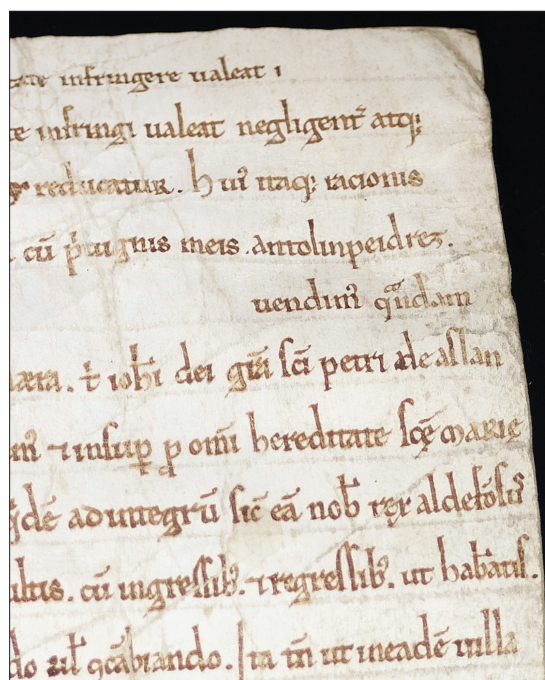 infringere ualeat ı
infringi ualeat negligent᷑ atq;
reducatur. huı᷒ itaq; racionis
cū p̄uignis meis. antolinpeidrez.
uendim᷒ quādam
ꞇ̄ ioħi dei gr̄a sc̄i petri de aslan
⁊ insuꝑ ꝓ om̄i hereditate sc̄ę marię
ad integrū sic̄ eā nob̄ rex aldefōsus
cū ingressib;. ⁊ regressib;. ut habeatis.
do uꝉ ꝯcābiando. Ita tn̄ ut ineadē uilla